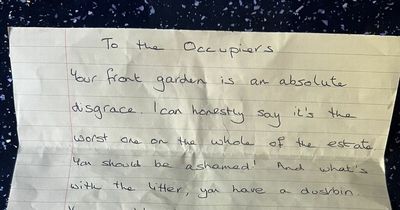 To the Occupiers
Your front garden is an absolute
disgrace. I can honestly say it's the
worst one on the whole of the estate
You should be ashamed! And what's
with the litter, you have a dustbin